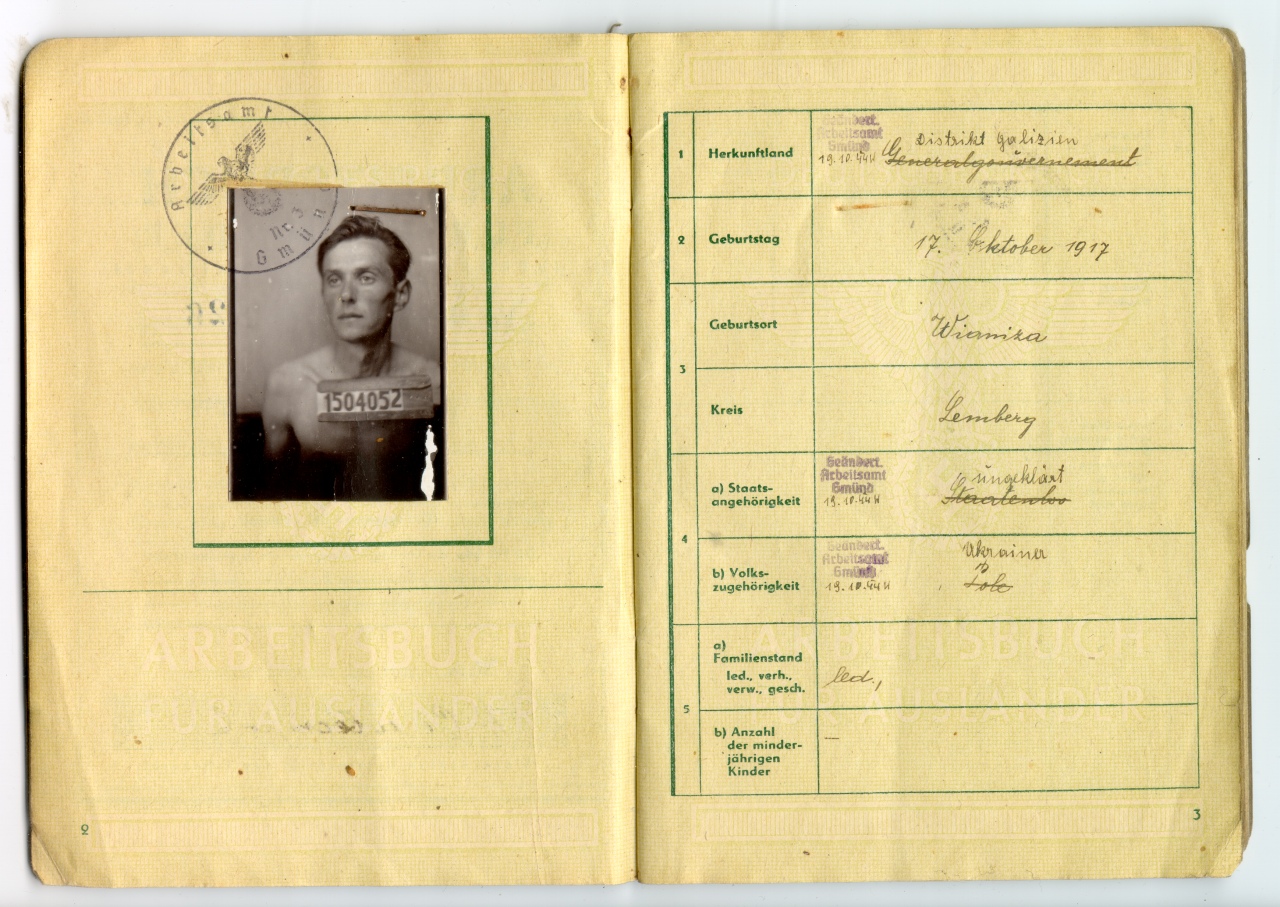 Arbeitsamt
Nr. 3
Gmünd
1504052
ARBEITSBUCH
FÜR AUSLÄNDER
2
1 Herkunftland
Geändert.
Arbeitsamt
Gmünd
19.10.44
Distrikt Galizien
Generalgouvernement
2 Geburtstag
17. Oktober 1917
3
Geburtsort
Wianiza
Kreis
Lemberg
4
a) Staats-
angehörigkeit
Geändert.
Arbeitsamt
Gmünd
19.10.44
ungeklärt
Staatenlos
b) Volks-
zugehörigkeit
Geändert.
Arbeitsamt
Gmünd
19.10.44
Ukrainer
Pole
5
a)
Familienstand
led., verh.,
verw., gesch.
led.,
b) Anzahl
der minder-
jährigen
Kinder
—
ARBEITSBUCH
FÜR AUSLÄNDER
3